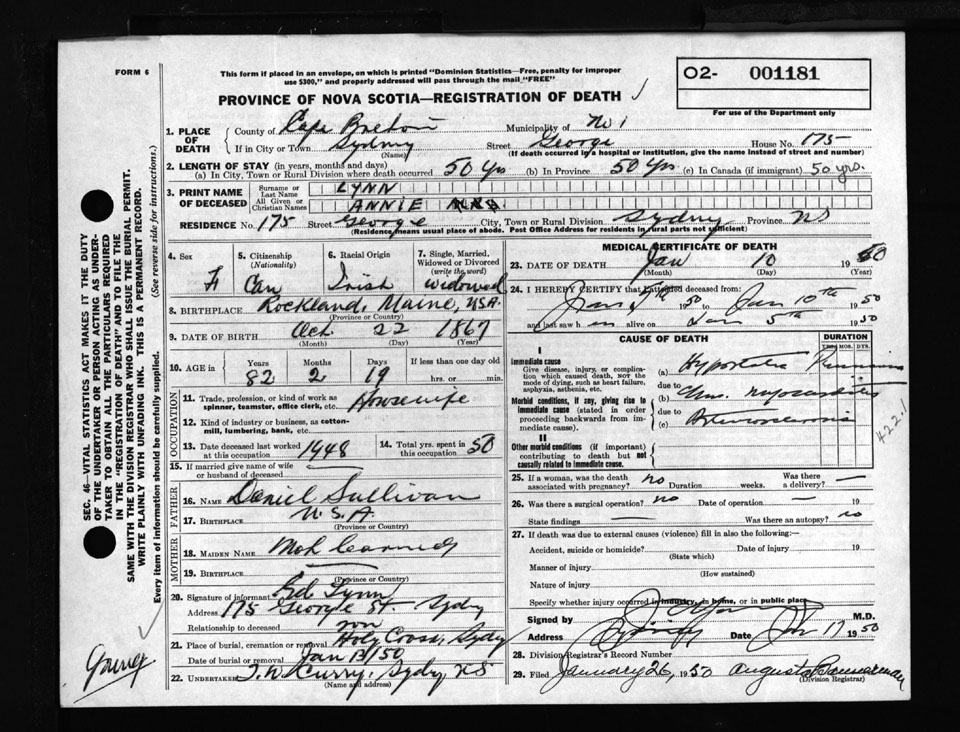 FORM 6
This form if placed in an envelope, on which is printed "Dominion Statistics—Free, penalty for improper
use $300," and properly addressed will pass through the mail "FREE"
O2- 001181
For use of the Department only
PROVINCE OF NOVA SCOTIA—REGISTRATION OF DEATH
1. PLACE OF DEATH
County of Cape Breton Municipality of No 1
If in City or Town Sydney Street George House No. 175
(Name) (If death occurred in a hospital or institution, give the name instead of street and number)
2. LENGTH OF STAY (in years, months and days)
(a) In City, Town or Rural Division where death occurred 50 Yrs (b) In Province 50 Yrs (c) In Canada (if immigrant) 50 yrs.
3. PRINT NAME OF DECEASED
Surname or Last Name LYNN
All Given or Christian Names ANNIE
RESIDENCE No. 175 Street George City, Town or Rural Division Sydney Province NS
(Residence means usual place of abode. Post Office Address for residents in rural parts not sufficient)
4. SEX F
5. CITIZENSHIP (Nationality) Can
6. Racial Origin Irish
7. Single, Married, Widowed or Divorced (write the word) Widowed
8. BIRTHPLACE Rockland, Maine, USA.
(Province or Country)
9. DATE OF BIRTH Oct 22 1867
(Month) (Day) (Year)
10. AGE in Years Months Days If less than one day old
82 2 19 hrs. or min.
OCCUPATION
11. Trade, profession or kind of work as spinner, teamster, office clerk, etc. Housewife
12. Kind of industry or business, as cotton-mill, lumbering, bank, etc.
13. Date deceased last worked at this occupation 1948
14. Total yrs. spent in this occupation 50
15. If married give name of wife or husband of deceased
FATHER
16. NAME Daniel Sullivan
17. BIRTHPLACE U.S.A.
(Province or Country)
MOTHER
18. MAIDEN NAME
19. BIRTHPLACE
(Province or Country)
20. Signature of informant Ed Lynn
Address 175 George St. Sydney
Relationship to deceased son
21. Place of burial, cremation or removal Holy Cross, Sydney
Date of burial or removal Jan 13/50
22. UNDERTAKER T.W. Curry, Sydney NS
(Name and address)
MEDICAL CERTIFICATE OF DEATH
23. DATE OF DEATH Jan 10 1950
(Month) (Day) (Year)
24. I HEREBY CERTIFY that I attended deceased from:
Jan 5th 1950 to Jan 10th 1950
and last saw her alive on Jan 5th 1950
CAUSE OF DEATH
DURATION
YRS. MOS. DYS.
I
Immediate cause
Give disease, injury, or complication which caused death, not the mode of dying, such as heart failure, asphyxia, asthenia, etc.
(a) Hypostatic Pneumonia
due to
Morbid conditions, if any, giving rise to immediate cause (stated in order proceeding backwards from immediate cause).
(b) Chr. myocarditis
due to
(c) Arteriosclerosis
422.1
II
Other morbid conditions (if important) contributing to death but not causally related to immediate cause.
25. If a woman, was the death associated with pregnancy? no Duration weeks. Was there a delivery? —
26. Was there a surgical operation? no Date of operation 19
State findings — Was there an autopsy? no
27. If death was due to external causes (violence) fill in also the following:—
Accident, suicide or homicide? Date of injury 19
(State which)
Manner of injury
(How sustained)
Nature of injury
Specify whether injury occurred in industry, in home, or in public place
Signed by M.D.
Address Sydney Date Jan 17 1950
28. Division Registrar's Record Number
29. Filed January 26, 1950 Augusta
(Division Registrar)
SEC. 46—VITAL STATISTICS ACT MAKES IT THE DUTY
OF THE UNDERTAKER OR PERSON ACTING AS UNDER-
TAKER TO OBTAIN ALL THE PARTICULARS REQUIRED
IN THE "REGISTRATION OF DEATH" AND TO FILE THE
SAME WITH THE DIVISION REGISTRAR WHO SHALL ISSUE THE BURIAL PERMIT.
WRITE PLAINLY WITH UNFADING INK. THIS IS A PERMANENT RECORD.
Every item of information should be carefully supplied. (See reverse side for instructions.)